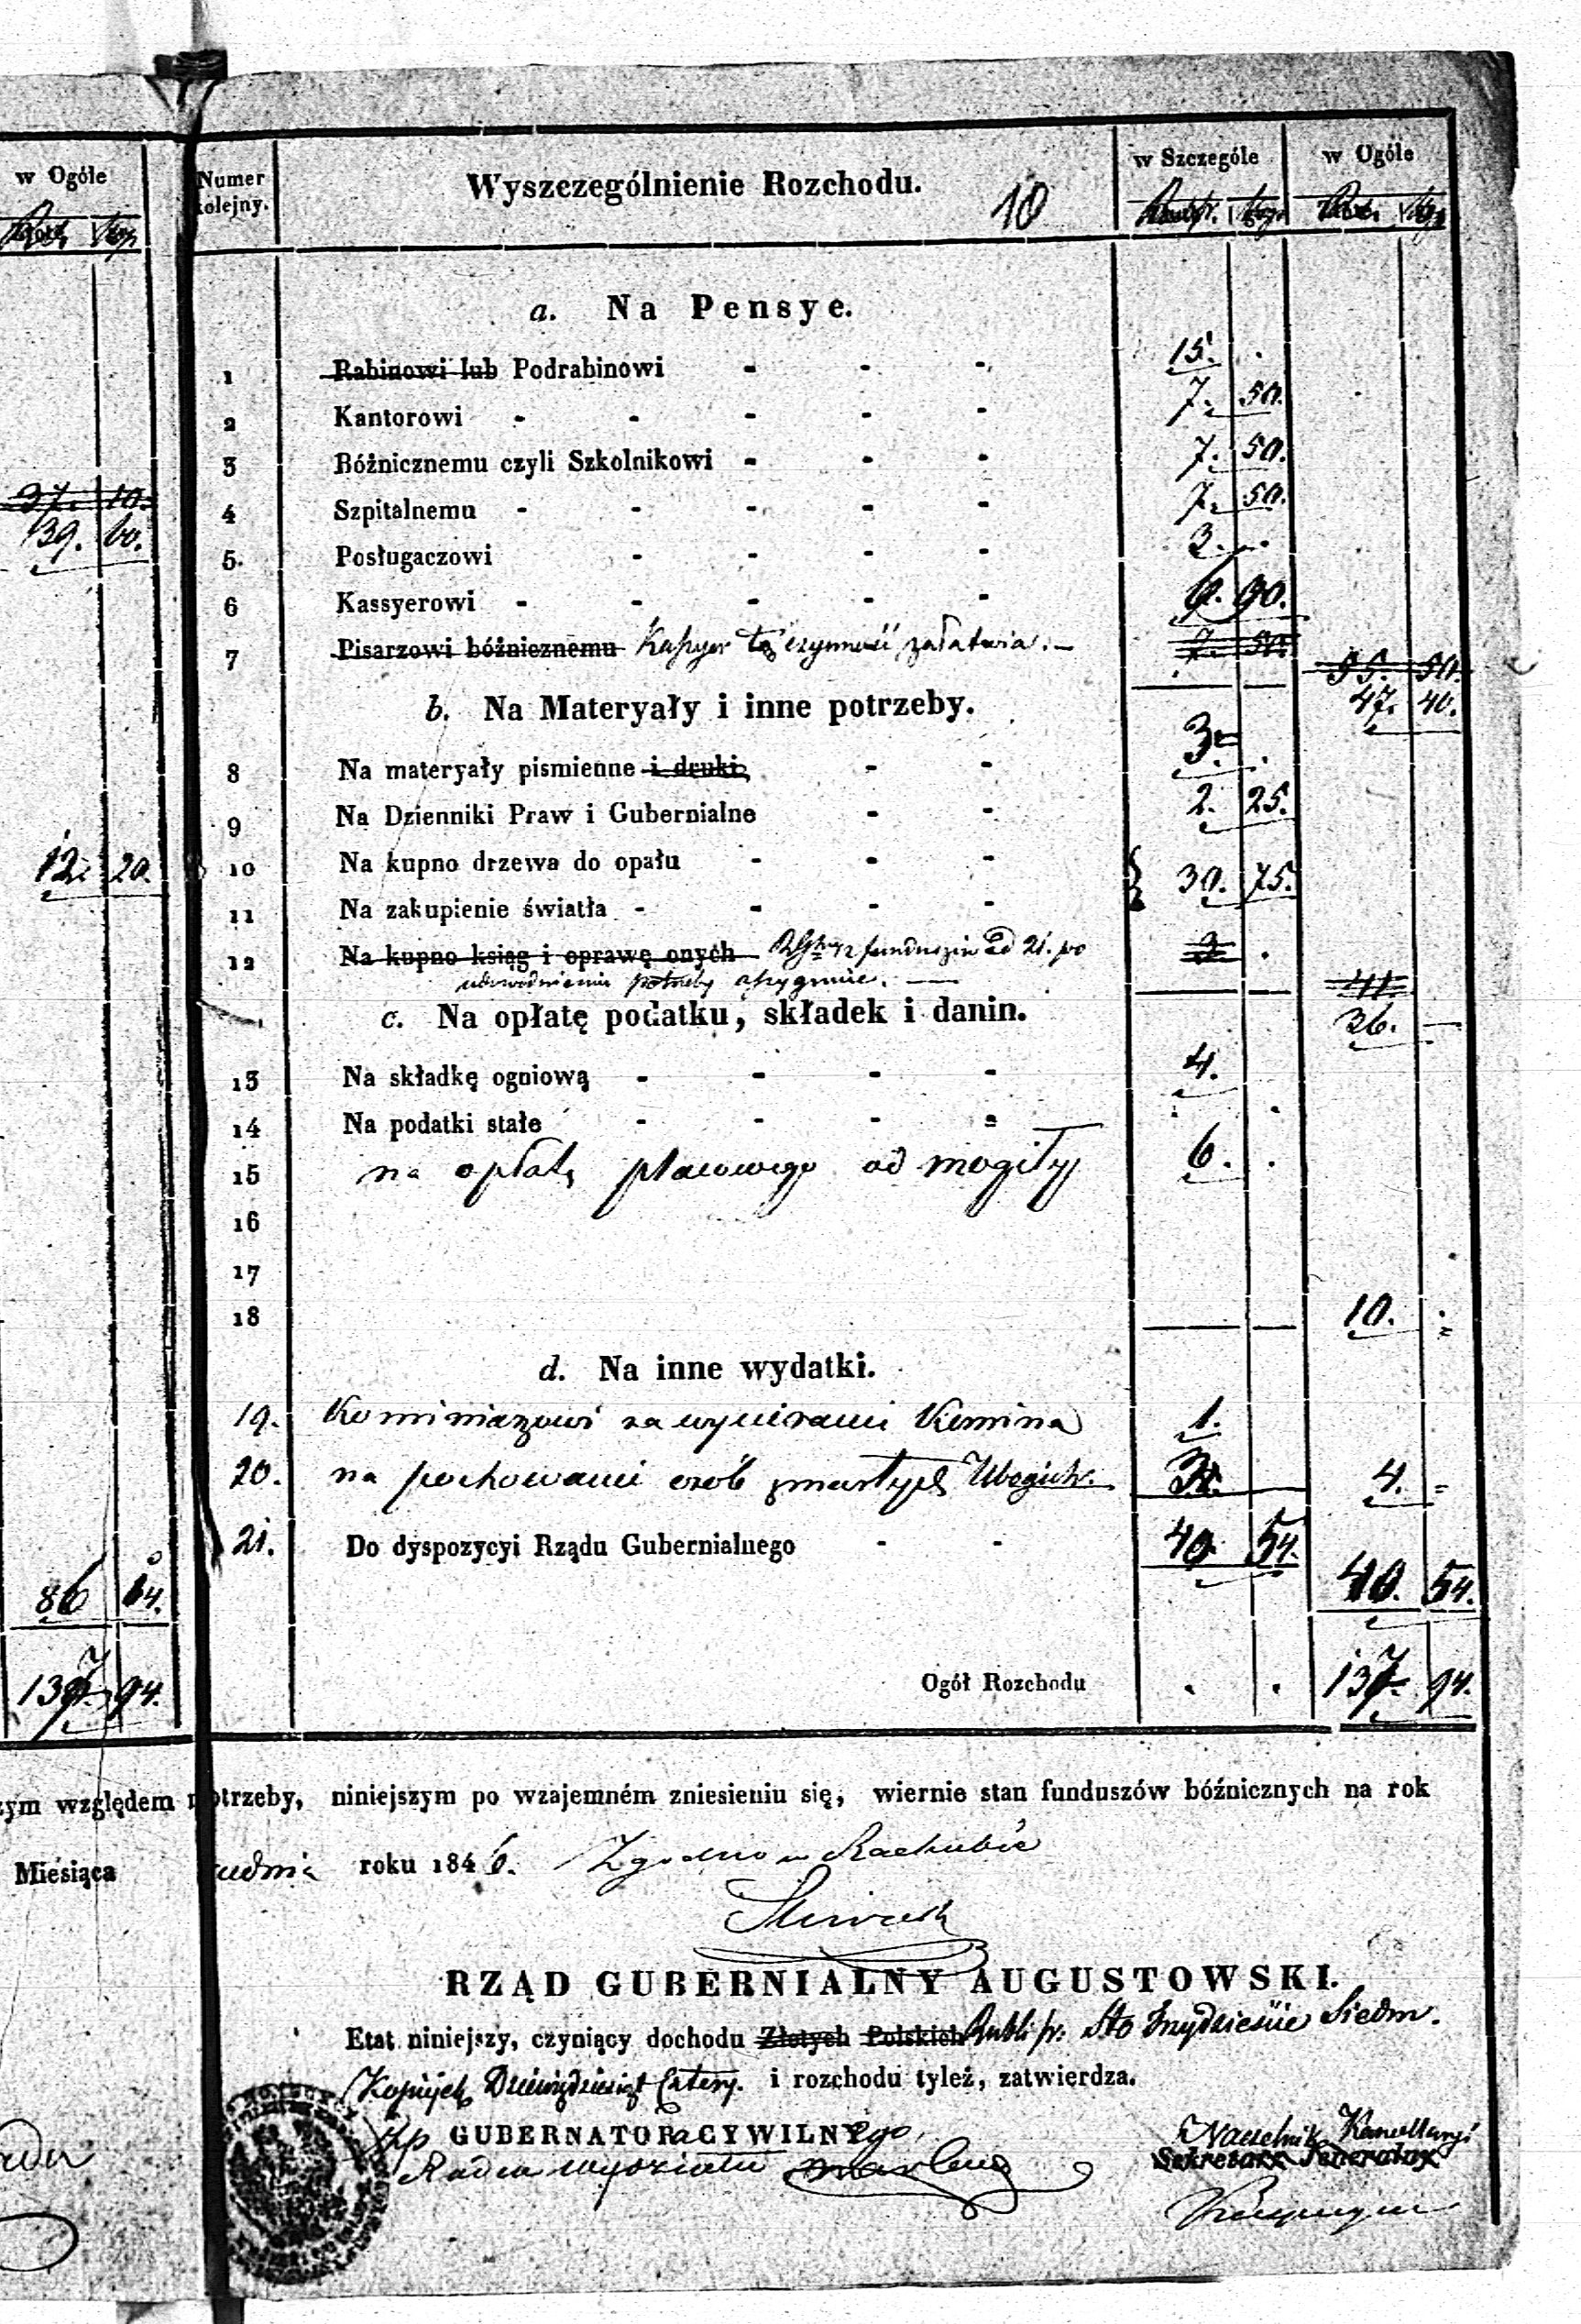 w Ogóle
37. 10.
39. 60.
12. 20.
86 64.
137. 94.
Numer kolejny. Wyszczególnienie Rozchodu. 10 w Szczególe w Ogóle
a. Na Pensye.
1 Rabinowi lub Podrabinowi - - - 15. .
2 Kantorowi - - - - - 7. 50.
3 Bóżnicznemu czyli Szkolnikowi - - - 7. 50.
4 Szpitalnemu - - - - - 7. 50.
5. Posługaczowi - - - - 3. .
6 Kassyerowi - - - - - 6. 90.
7 Pisarzowi bóżnicznemu Kassyer tę czynność załatwia. - 7. 50. 55. 50.
47. 40.
b. Na Materyały i inne potrzeby.
8 Na materyały pismienne i druki, - - 3. .
9 Na Dzienniki Praw i Gubernialne - - 2. 25.
10 Na kupno drzewa do opału - - -
30. 75.
11 Na zakupienie światła - - - -
12 Na kupno ksiąg i oprawę onych z funduszu ad 21. po
potrzeby assygnuie. 41.
36. —
c. Na opłatę podatku, składek i danin.
13 Na składkę ogniową - - - - 4.
14 Na podatki stałe - - - - . .
15 na opłatę placowego od mogiły 6. .
16
17
18 10. .
d. Na inne wydatki.
19. Kominiarzowi za wycieranie Komina 1.
20. na pochowanie osób zmarłych Ubogich. 3. 4. =
21. Do dyspozycyi Rządu Gubernialnego - - 40 54.
40. 54.
Ogół Rozchodu . . 137. 94.
zym względem potrzeby, niniejszym po wzajemném zniesieniu się, wiernie stan funduszów bóżnicznych na rok
Miesiąca roku 1846. Zgodno w Rachubie
RZĄD GUBERNIALNY AUGUSTOWSKI.
Etat niniejszy, czyniący dochodu Złotych Polskich Rubli sr. Sto Trzydzieści Siedm.
Kopiejek Dziewięćdziesiąt Cztery. i rozchodu tyleż, zatwierdza.
GUBERNATORA CYWILNEgo, Naczelnik Kancellaryi
Radca wydziału Sekretarz Jeneralny